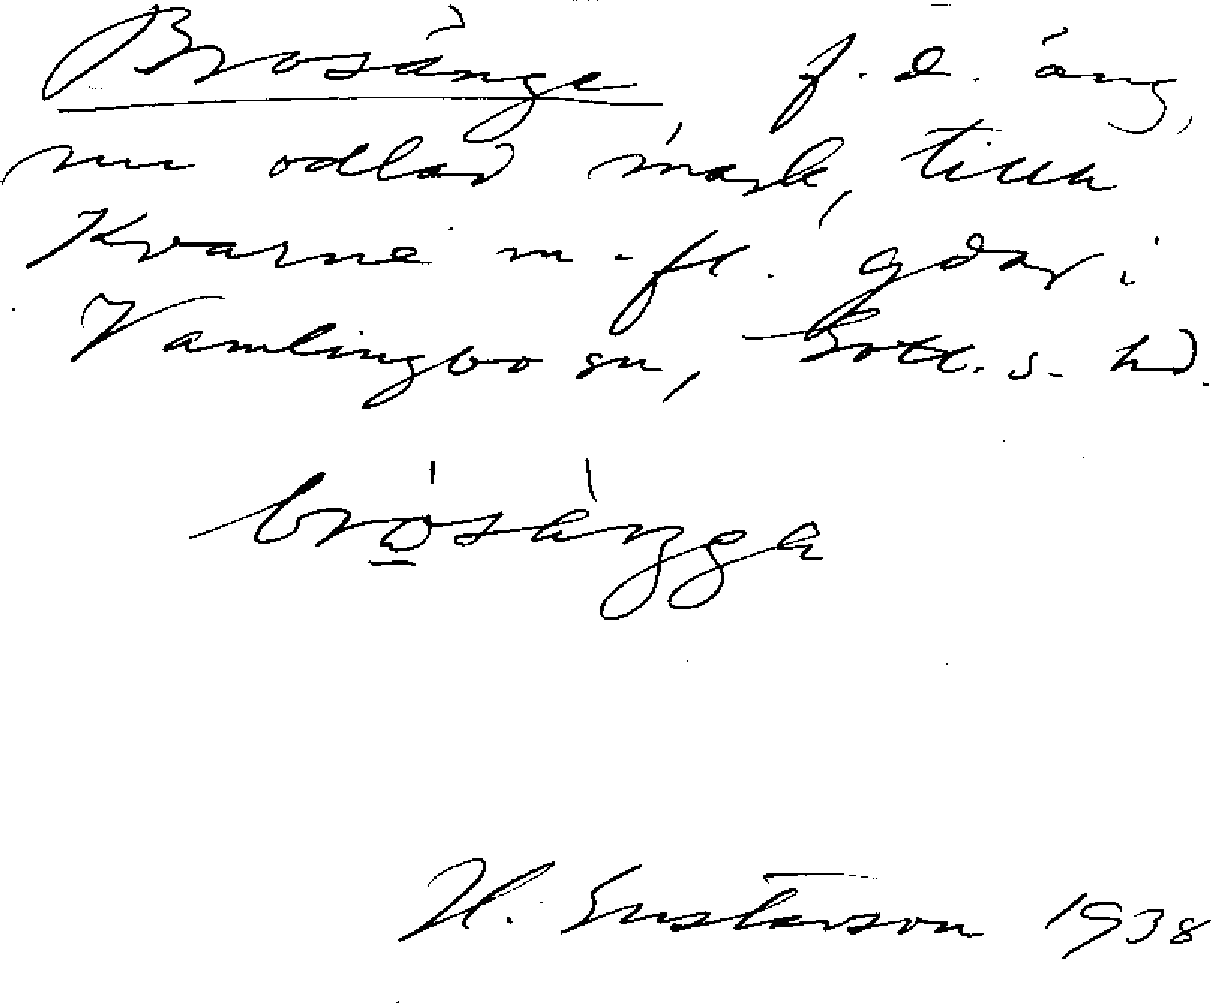 Brosänge f. d. äng,
nu odlad mark, till
Kvarne m. fl. gdar i
Vamlingbo sn, Gotl. s. hd.
H. Gustavson 1938